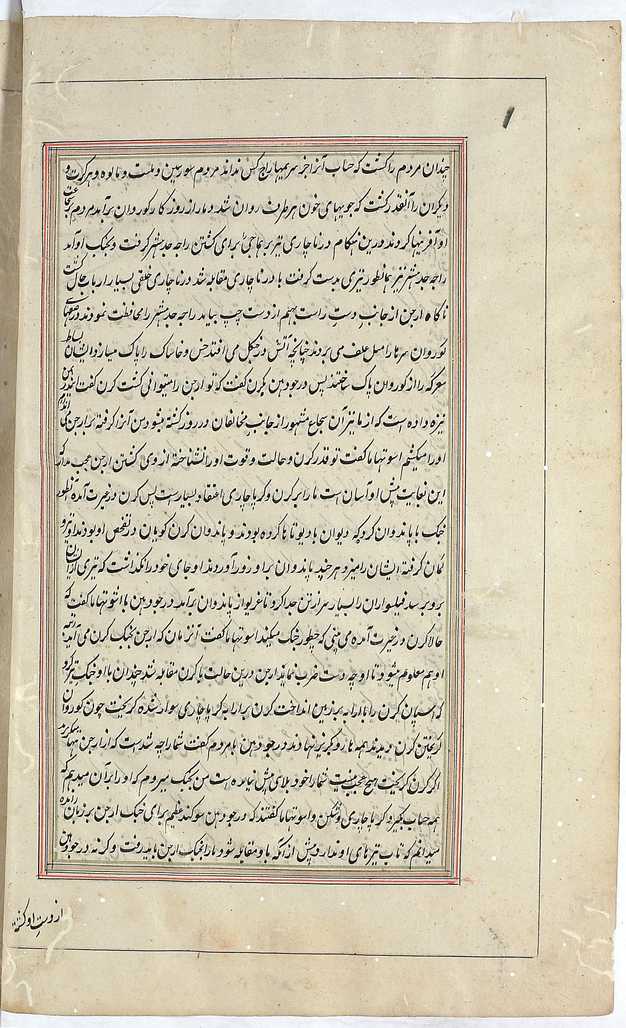 چندان مردم را کشت که حساب آنرا جز سریمهاراج کس نداند مردم سورسین و ملت و مالوه و هر کرت و
دیگران را آنقدر کشت که جویهای خون هر طرف روان شد و مار از روزگار کوروان برآمد مردم شجاعت
او آفرینها کردند درین هنگام درناچاری تیر برهماجی برای کشتن راجه جدهشتر گرفت و بجنک او آمد
راجه جدهشتر نیز همانطور تیری بدست گرفت با درناچاری مقابله شد درناچاری خلقی بسیار را بر خاک کشت
ناگاه ارجن از جانب دست راست بهیم از دست چپ بیامد راجه جدهشتر را محافظت نمودند در صفهای
کوروان سرها را مثل علف می بردند چنانچه آتش در جنکل می افتد خس و خاشاک را پاک میسازد ایشان بساط
معرکه را از کوروان پاک ساختند پس درجودهن بکرن گفت که تو ارجن را میتوانی کشت کرن گفت اندر من
نیزه داده است که از ما نیز آن شجاع مشهور از جانب مخالفان در روز کشته میشود من آنرا گرفته برارجن می اندازم
او را میکشم اسوتهاما گفت تو قدر کرن و حالت و قوت او را نشناخته از وی کشتن ارجن عجب مدار که
این بغایت پیش او آسان است ما را بر کرن و کرپاچاری اعتقاد بسیارست پس کرن در غیرت آمده بطور
جنک با پاندوان کرد که دیوان با دیوتاها کرده بودند و پاندوان کرن کویان در تفحص او بودند او تیر و
کمان گرفته ایشان را میزد هرچند پاندوان براو زور آوردند او جای خود را نگذاشت که تیری از ایشان
برو برسد فیلسواران را بسیار سر از تن جدا کرد تا غریو از پاندوان برآمد درجودهن با اسوتهاما گفت که
حالا کرن در غیرت آمده می بینی که چطور جنک میکند اسوتهاما گفت آنزمان که ارجن بجنک کرن می آید مرا
او هم معلوم میشود تا او چه دست ضرب نماید ارجن درین حالت با کرن مقابله شد چندان با او جنک تیر کرد
که اسپان کرن را با ارابه بر زمین انداخت کرن بر ارابه کرپاچاری سوار شده گریخت چون کوروان
گریختن کرن دیدند همه ها رو بگریز نهادند درجودهن با مردم گفت شما را چه شدست که از ارجن میگریزید
اگر کرن گریخت هیچ عجب نیست شما را خود بلای پیش نیامده است من بجنک میروم که او را برآن میدهم که
همه حساب بگیرد کرپاچاری و شکن و اسوتهاما گفتند که درجودهن سوکند عظیم برای جنک ارجن بر زبان رانده
میدانم که تاب تیرهای او ندارد پیش از آنکه باو مقابله شود ما را بجنک ارجن باید رفت و گرنه درجودهن
از دست او کشته